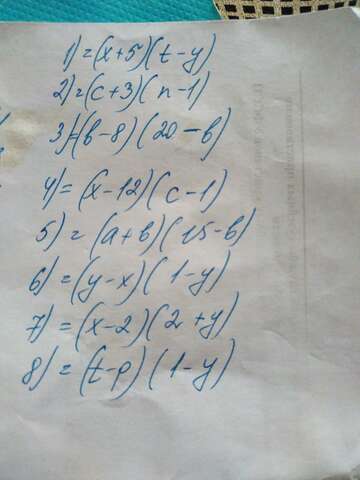 1) = (x+5)(t-y)
2) = (c+3)(n-1)
3) = (b-8)(20-b)
4) = (x-12)(c-1)
5) = (a+b)(15-b)
6) = (y-x)(1-y)
7) = (x-2)(2+y)
8) = (t-p)(1-y)